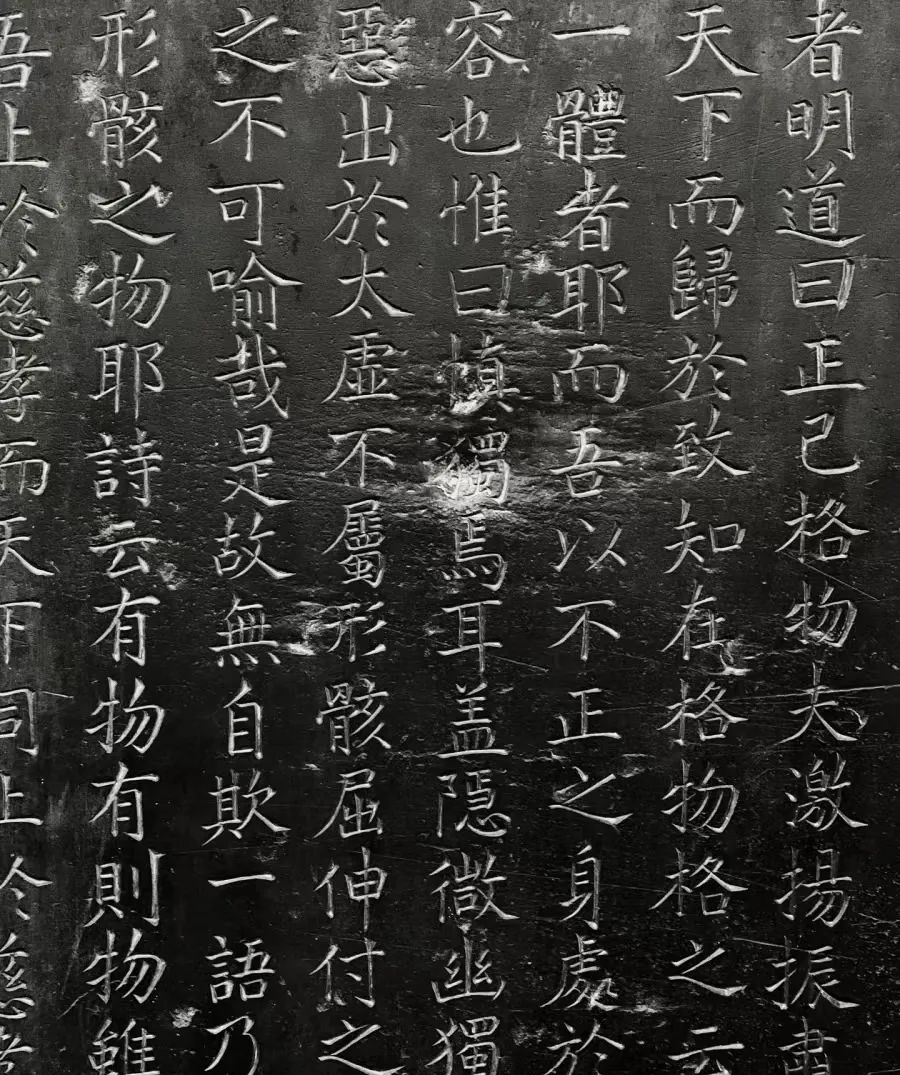 者明道曰正已格物夫激揚振肅
天下而歸於致知在格物格之云
一體者耶而吾以不正之身處於
容也惟曰慎獨焉耳盖隱微幽獨
惡出於太虛不屬形骸屈伸付之
之不可喻哉是故無自欺一語乃
形骸之物耶詩云有物有則物雖
吾上於慈孝而天下同上於慈孝